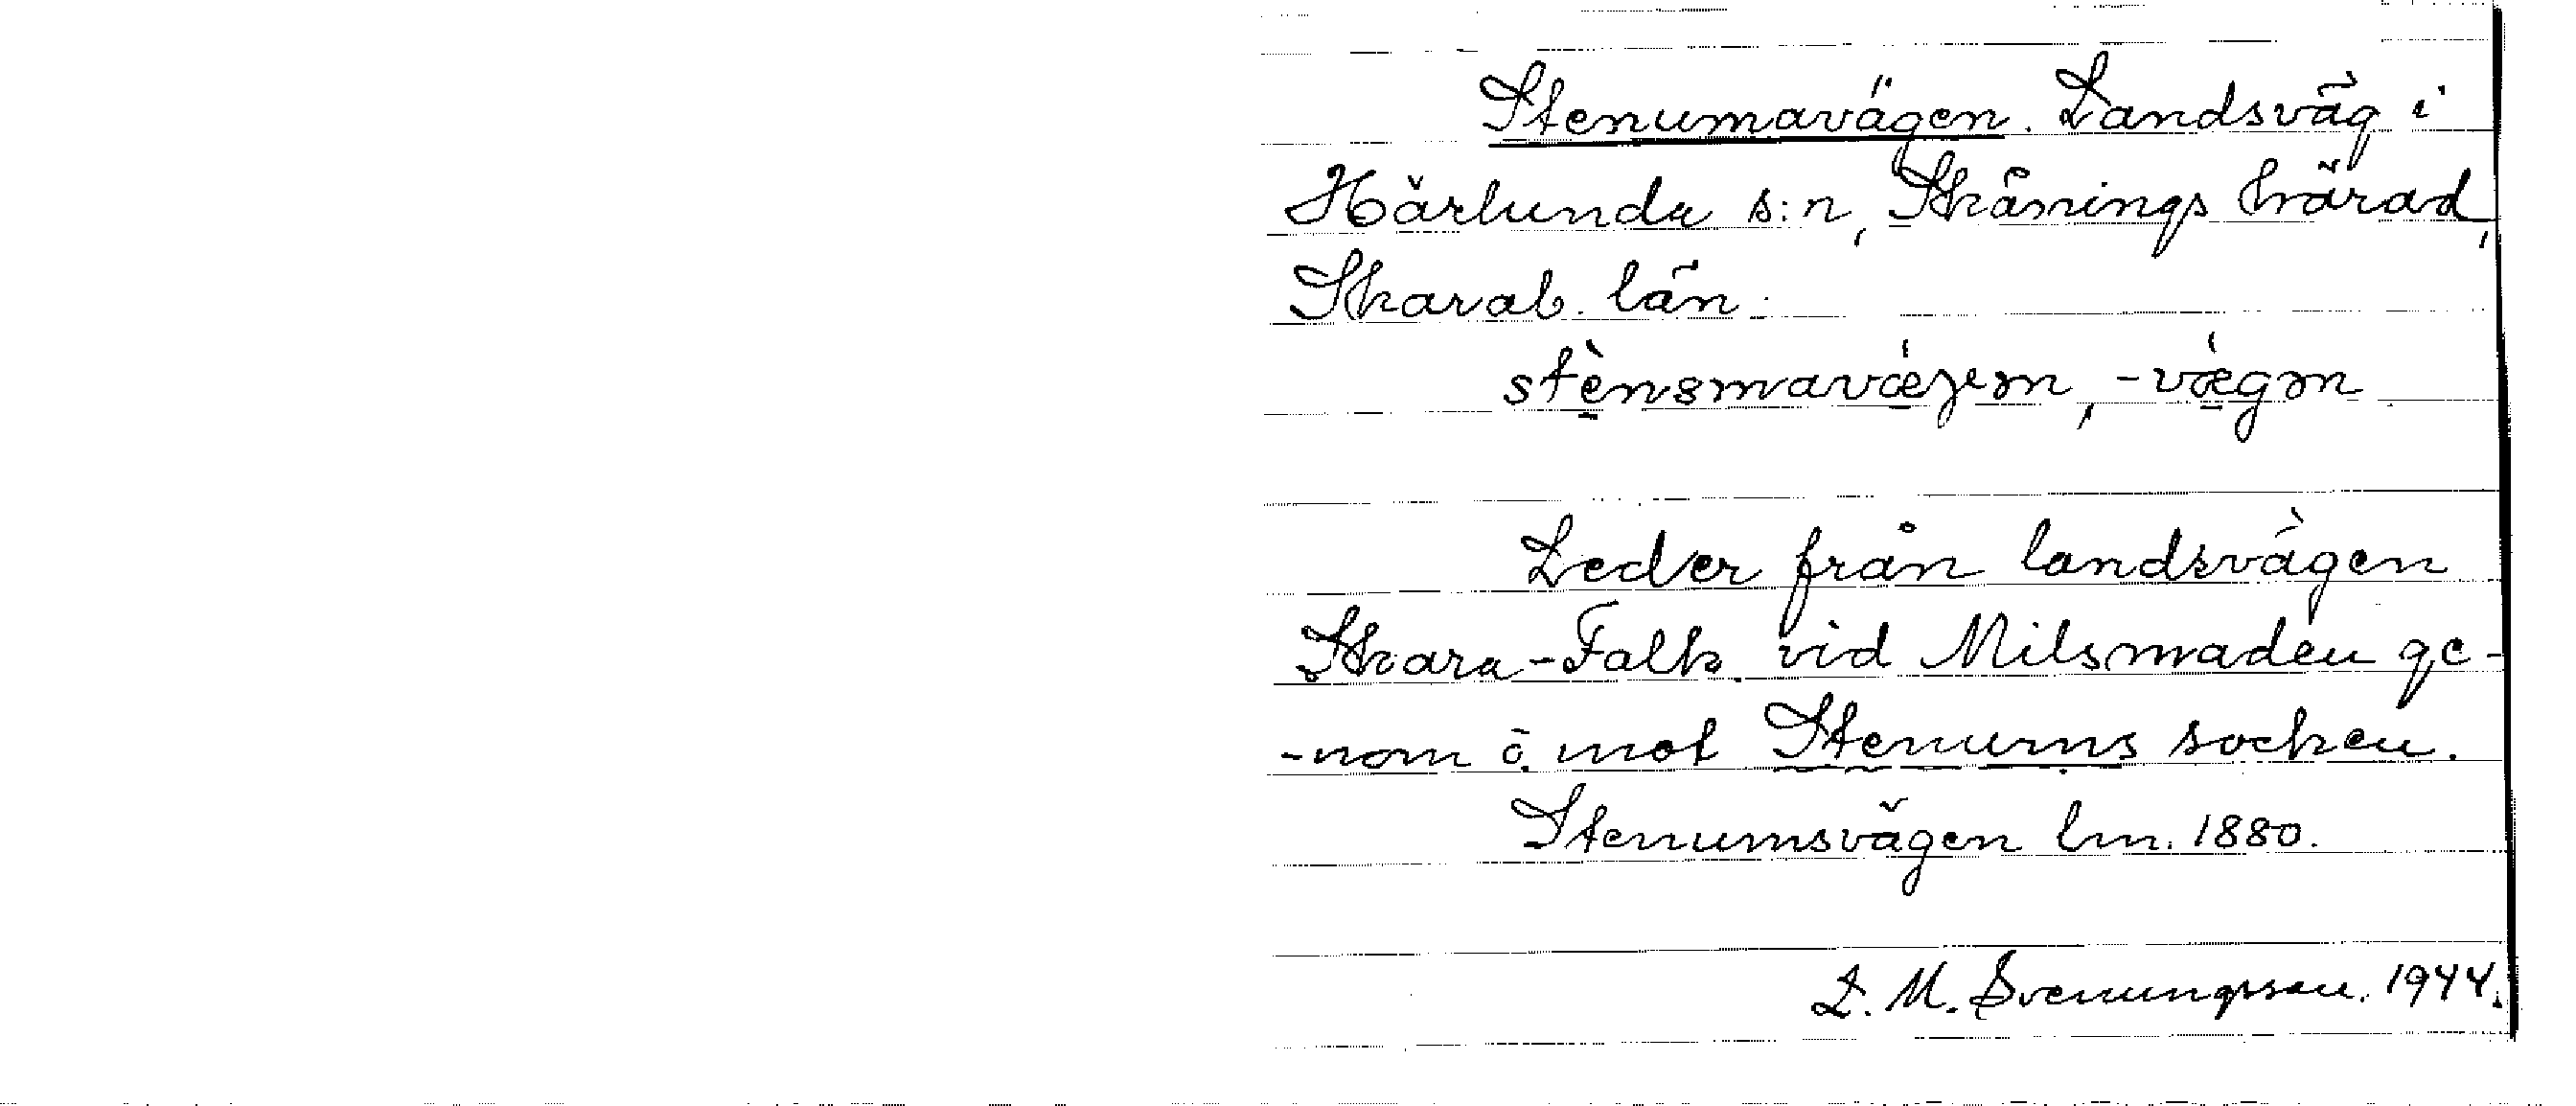 Stenumavägen. Landsväg i
Härlunda s:n, Skånings härad,
Skarab. län.
stènsmavǽgen, -vǽgən
Leder från landsvägen
Skara-Falk. vid Milsmaden ge-
-nom ö. mot Stenums socken.
Stenumsvägen lm. 1880.
L. M. Svenungsson. 1944.